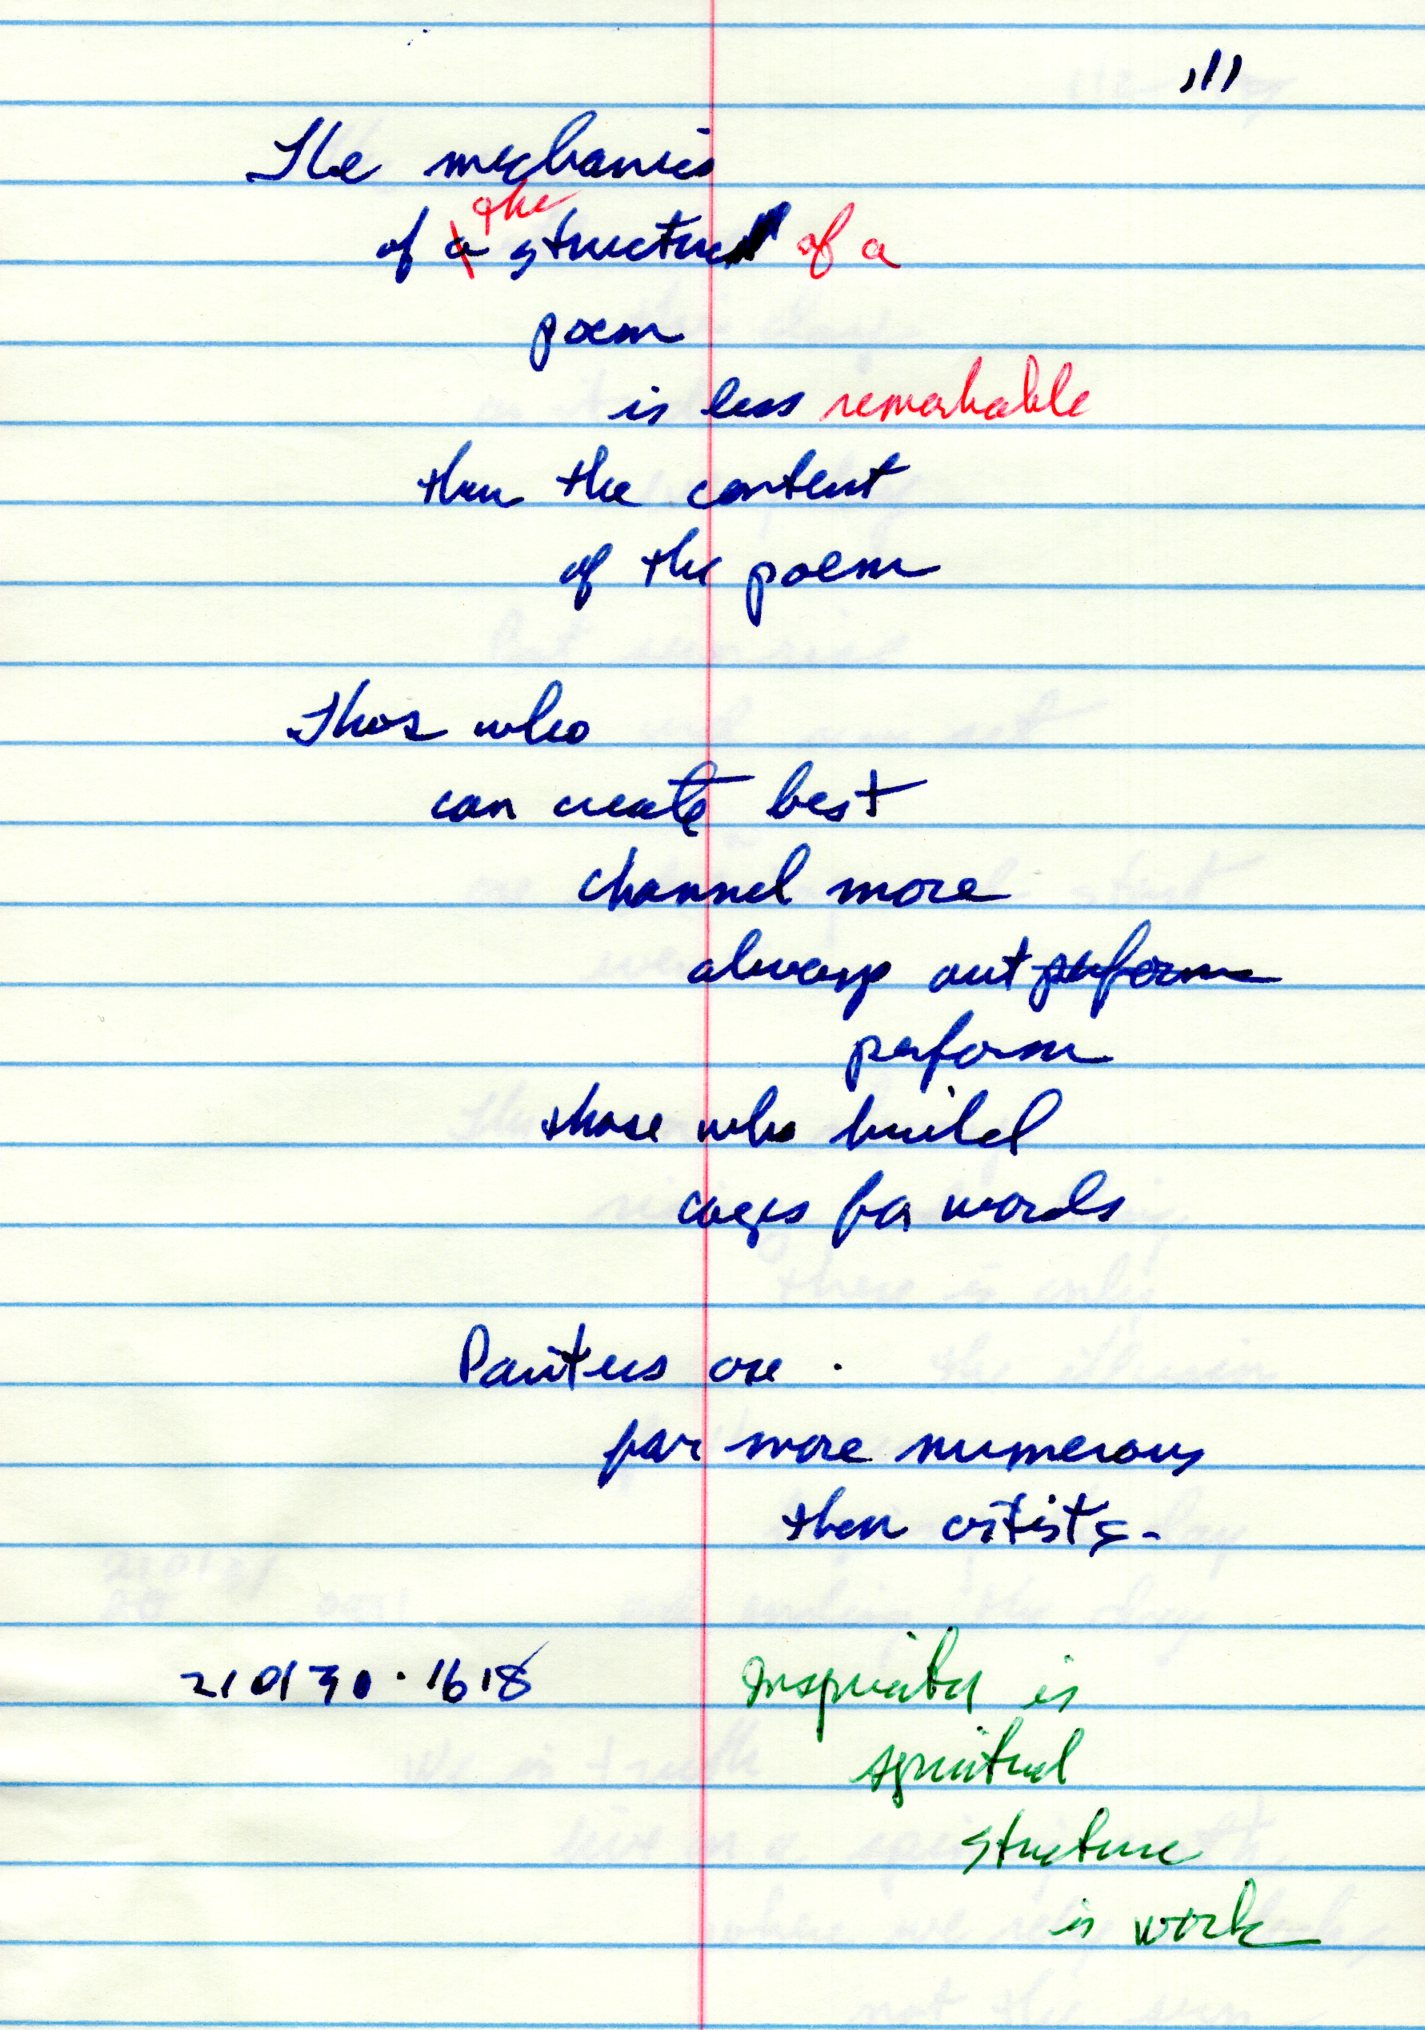 111
The mechanics
of a the structure of a
poem
is less remarkable
then the content
of the poem
Those who
can create best
channel more
always out perform
perform
those who build
cages for words
Painters are
far more numerous
then artists.
210130.1618
Inspiration is
spiritual
structure
is work